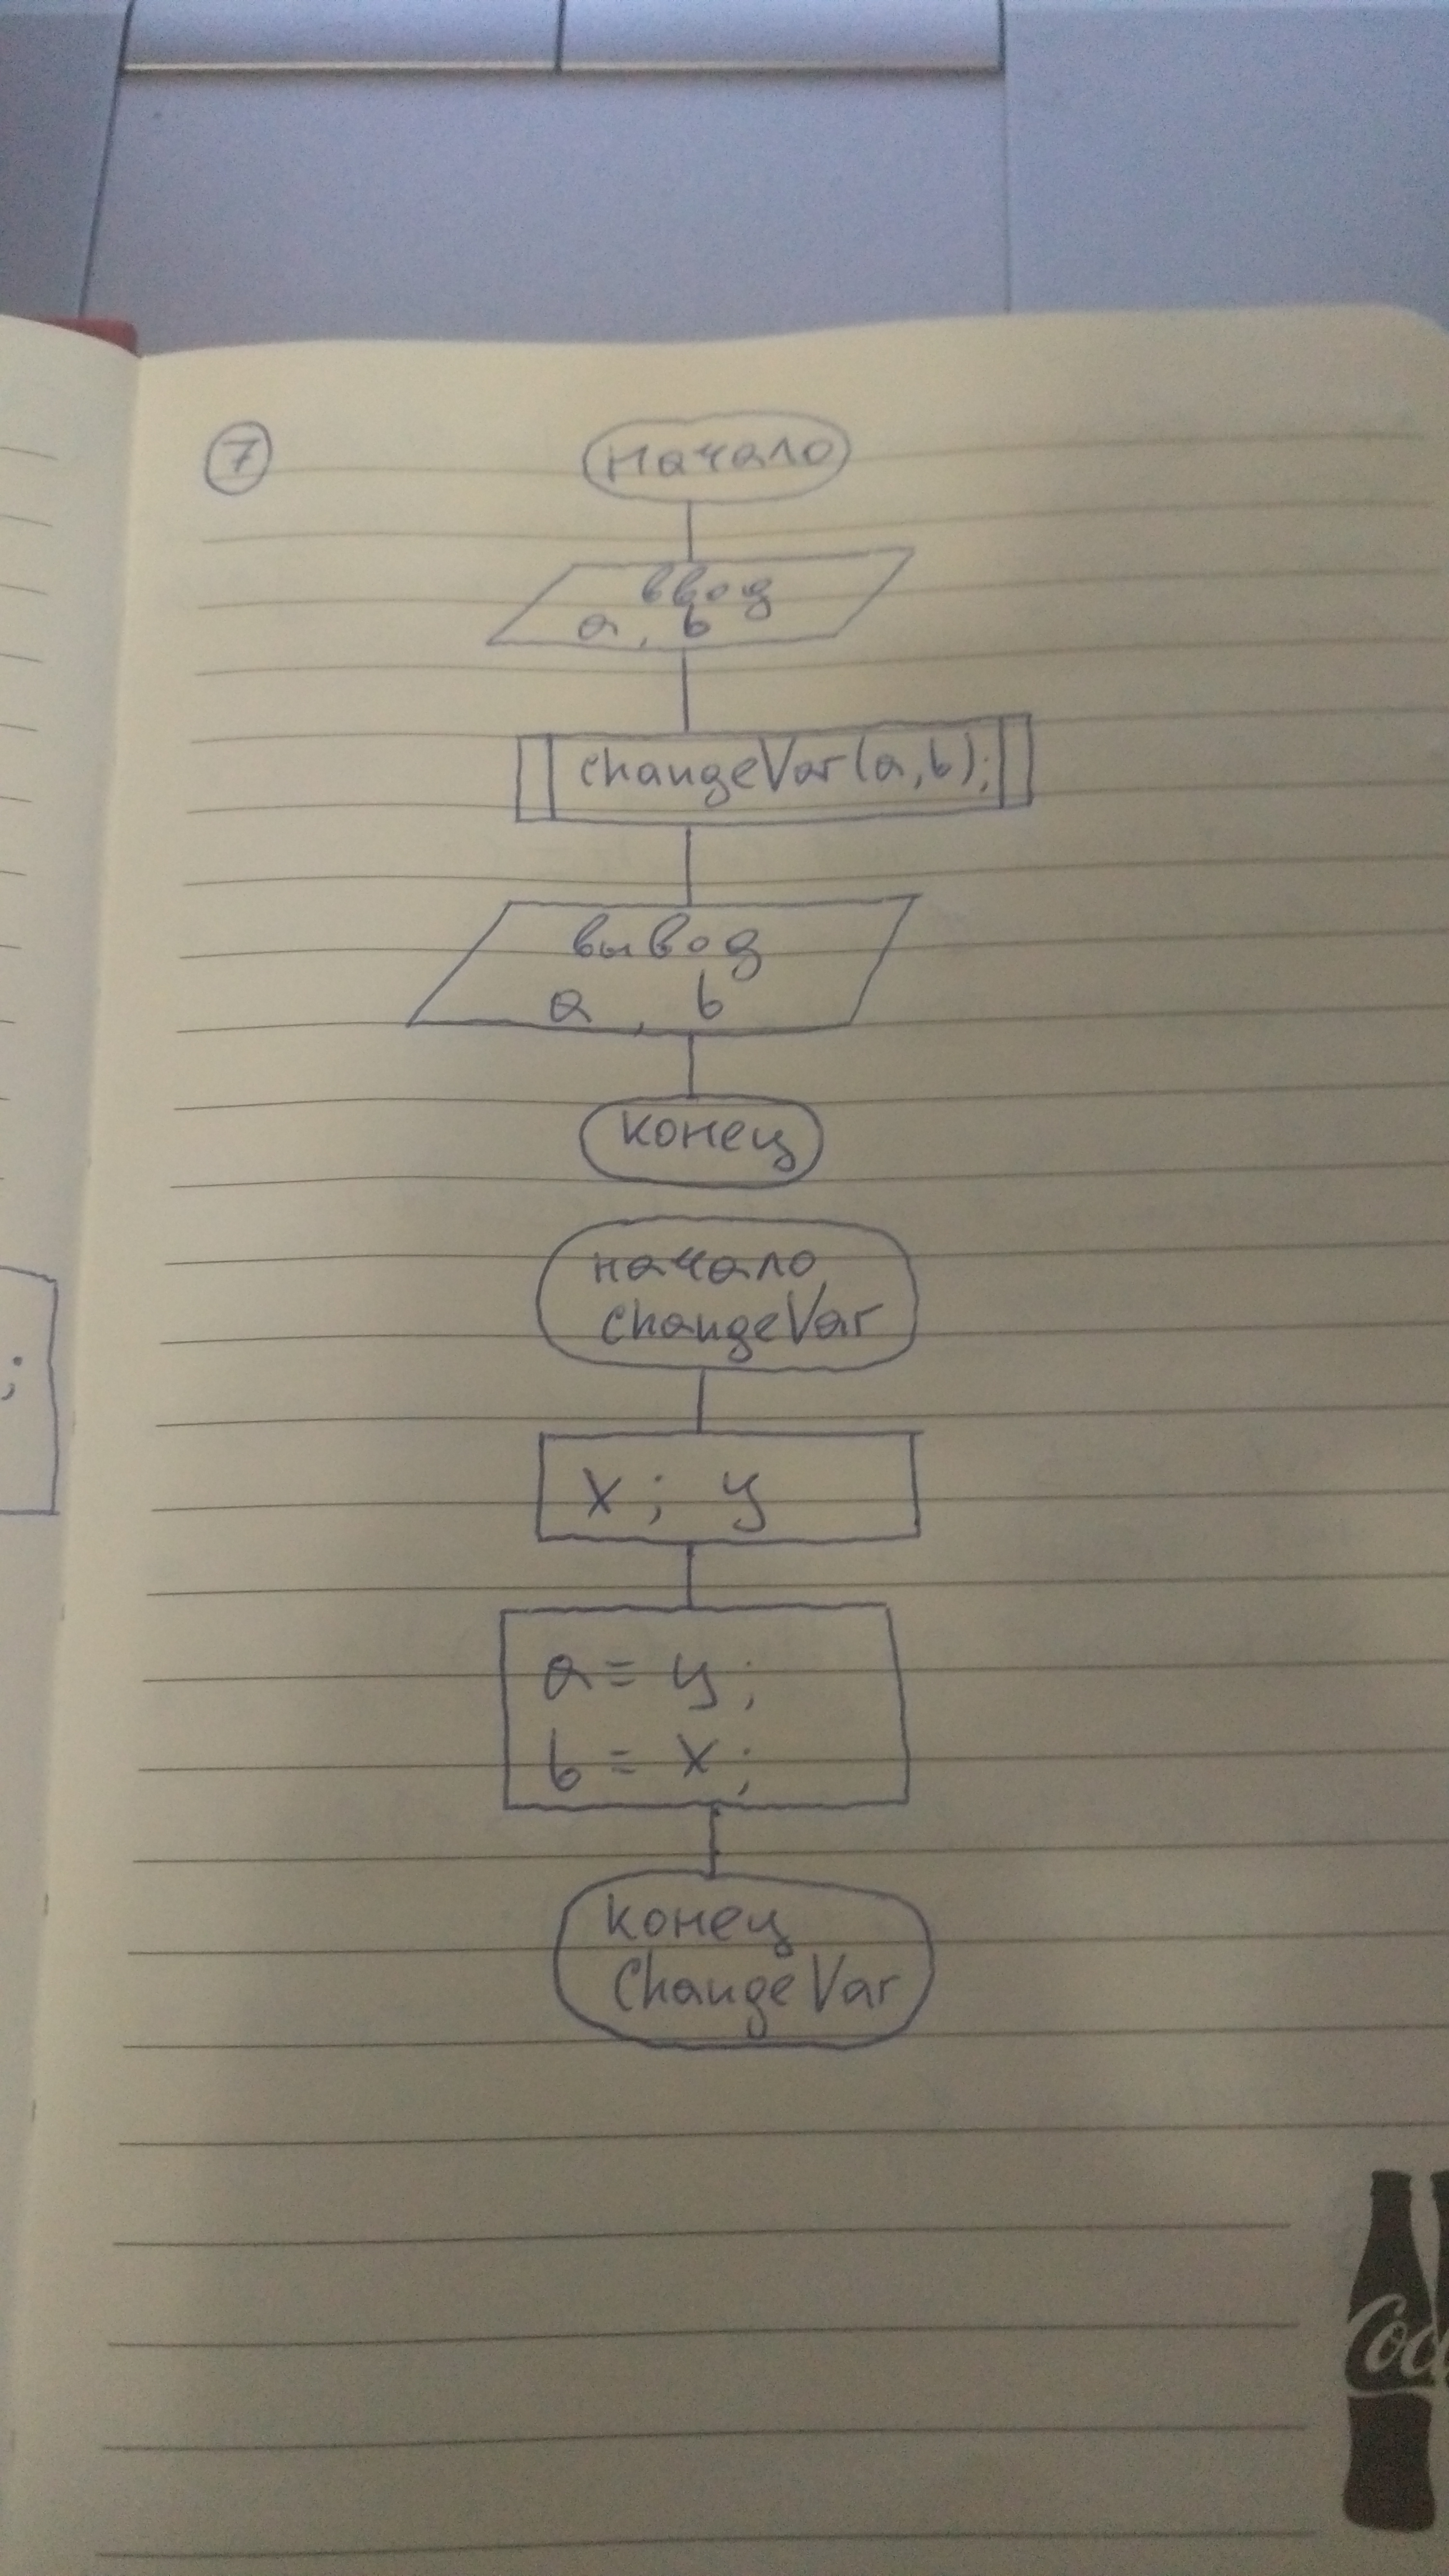 7
начало
ввод
a, b
changeVar(a,b);
вывод
a, b
конец
начало
changeVar
x; y
;
a = y;
b = x;
конец
ChangeVar